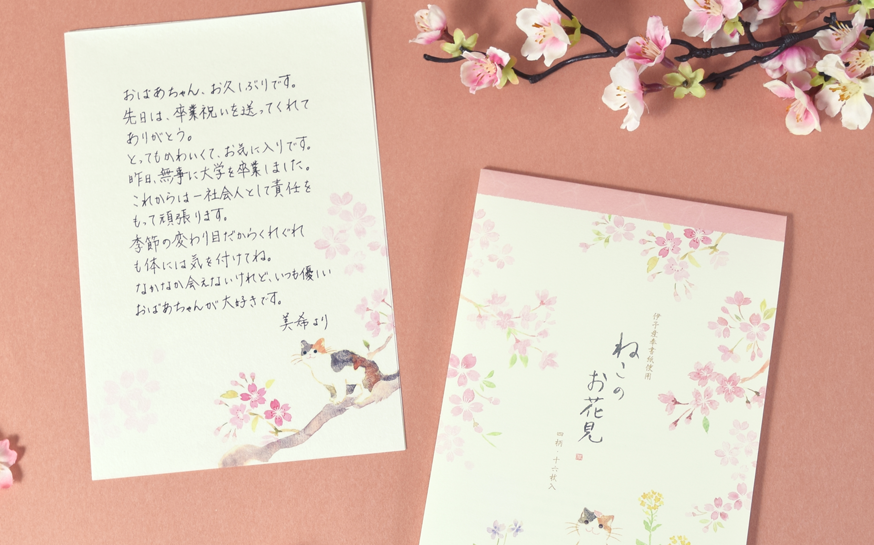 おばあちゃん、お久しぶりです。
先日は、卒業祝いを送ってくれて
ありがとう。
とってもかわいくて、お気に入りです。
昨日、無事に大学を卒業しました。
これからは一社会人として責任を
もって頑張ります。
季節の変わり目だからくれぐれ
も体には気を付けてね。
なかなか会えないけれど、いつも優しい
おばあちゃんが大好きです。
美希より
伊予産奉書紙使用
ねこの
お花見
四柄・十六枚入